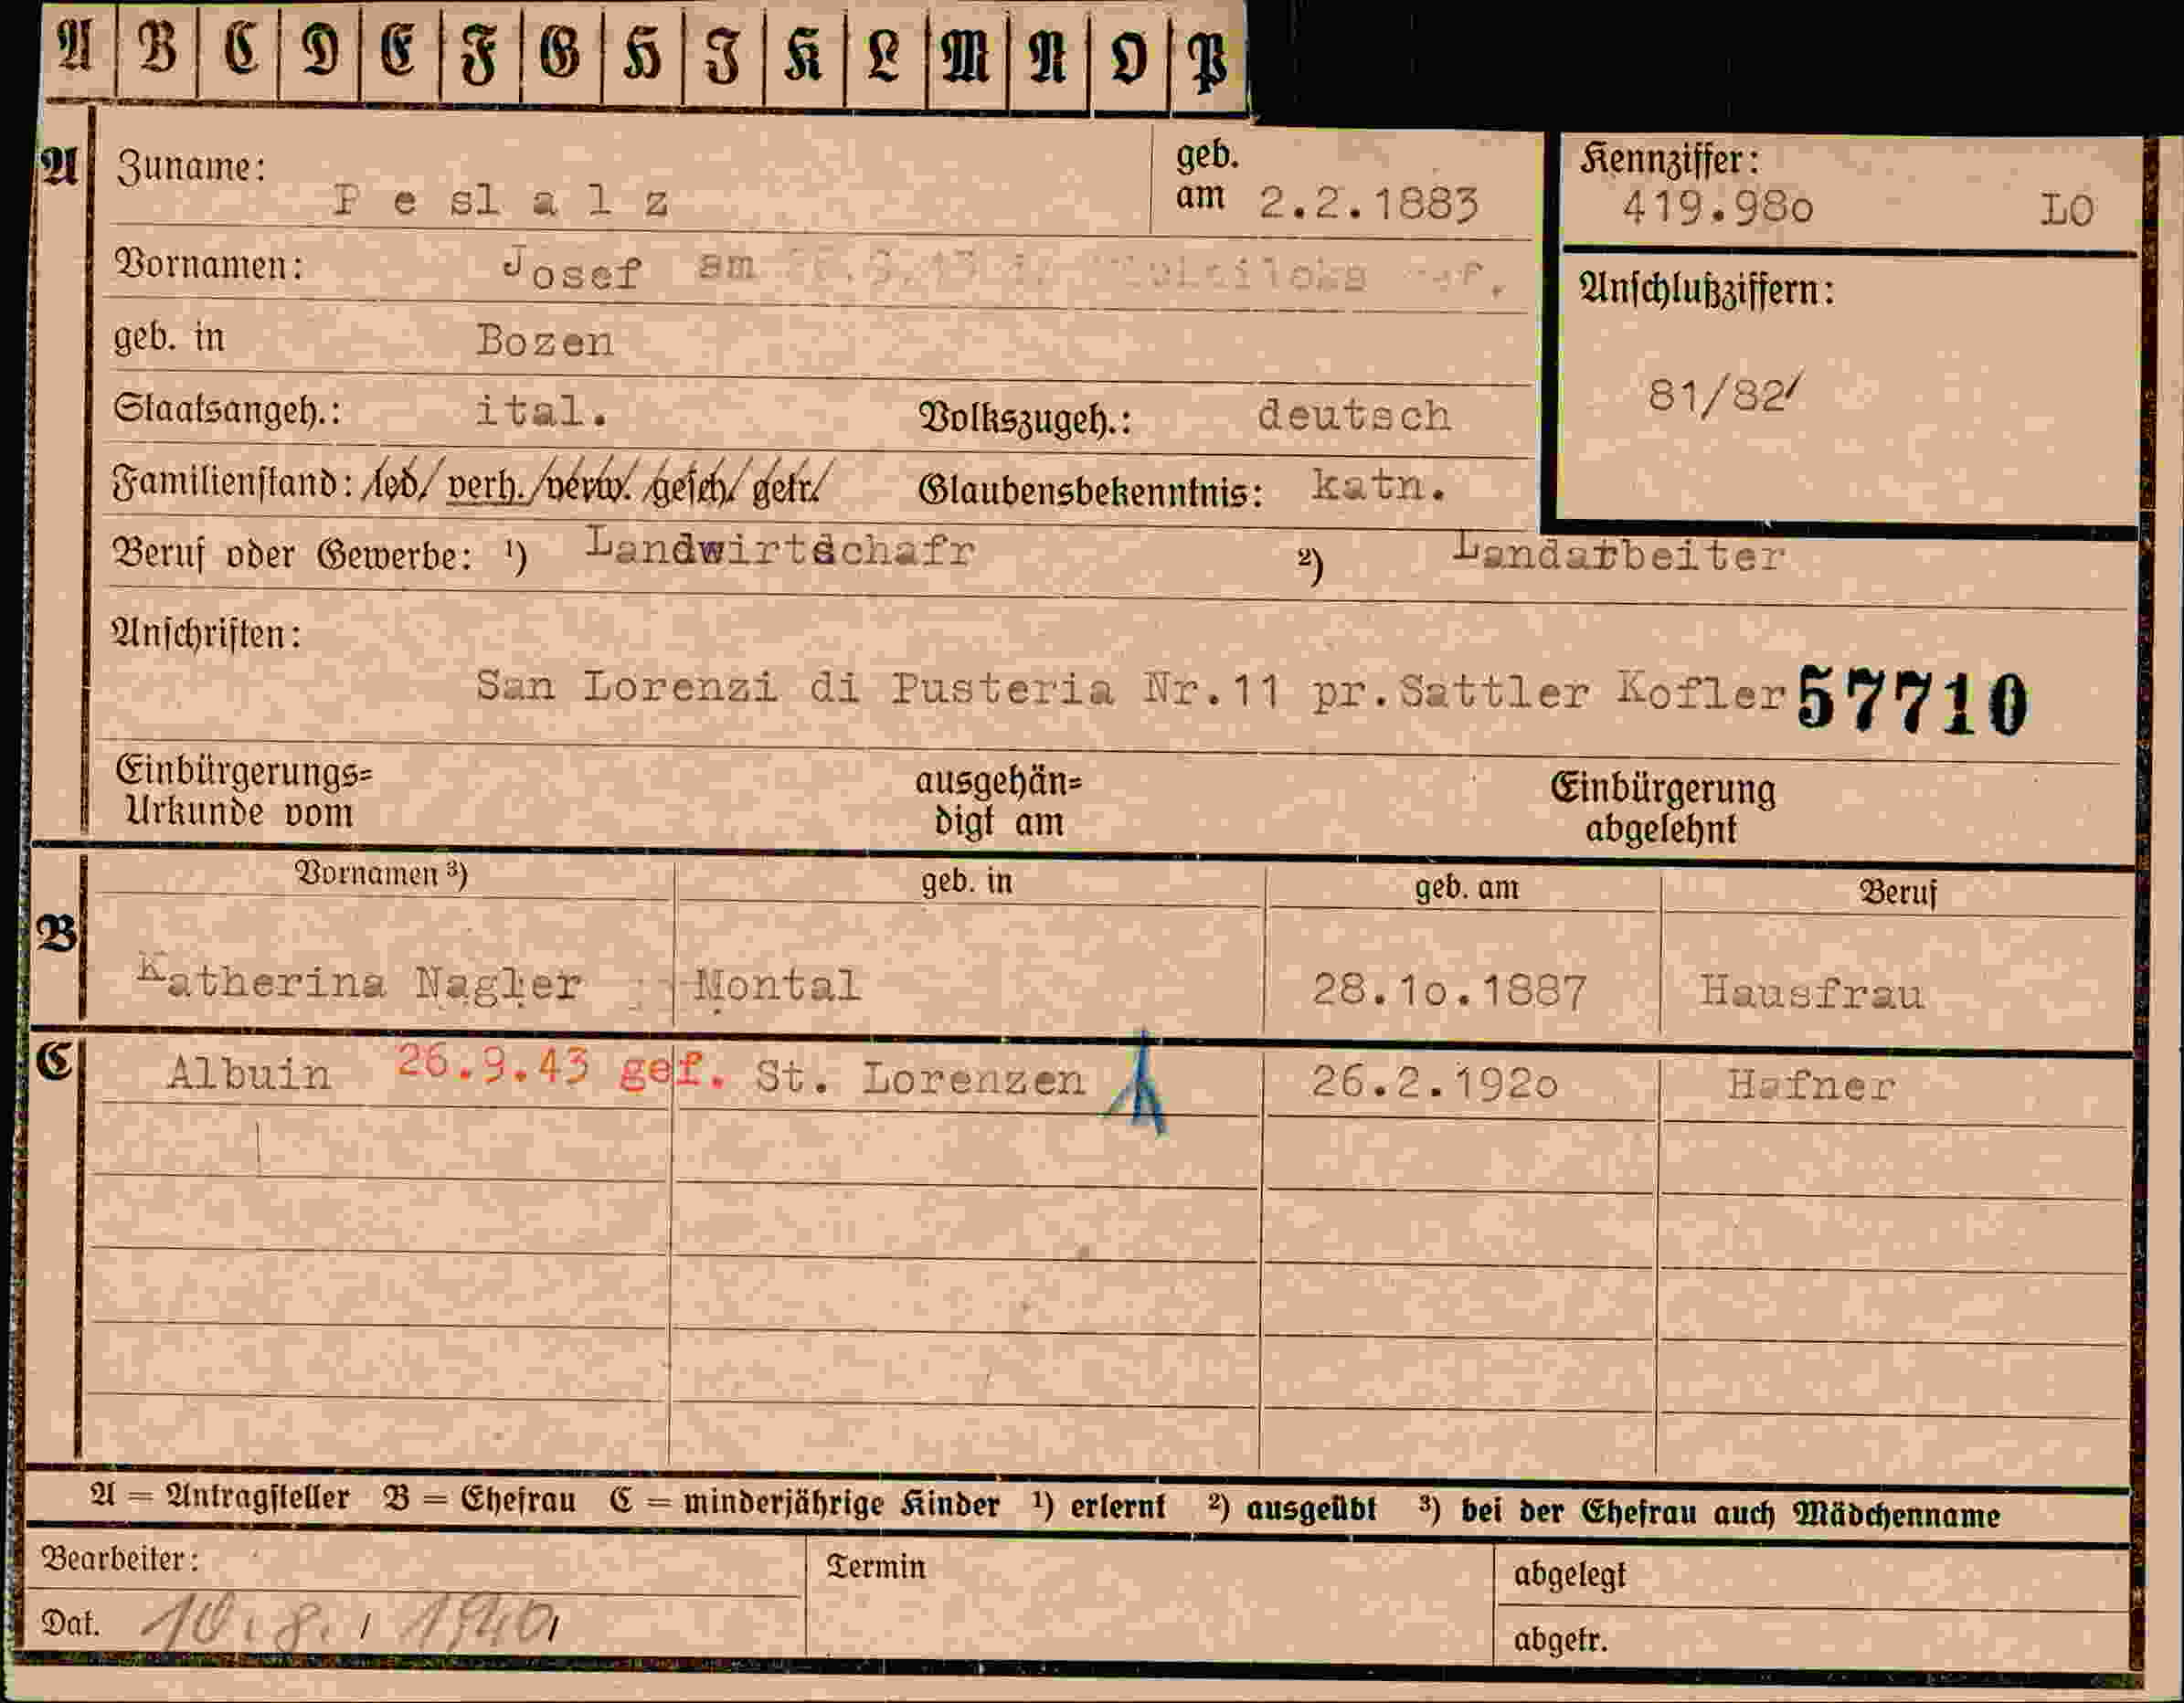 A B C D E F G H I K L M N O P
A Zuname: P e sl a l z geb. am 2.2.1883
Kennziffer: 419.98o LO
Vornamen: Josef am
Anschlußziffern:
81/82
geb. in Bozen
Staatsangeh.: ital. Volkszugeh.: deutsch
Familienstand: led/ verh./verw./gesch/ getr/ Glaubensbekenntnis: katn.
Beruf oder Gewerbe: ¹) Landwirtschafr ²) Landarbeiter
Anschriften:
San Lorenzi di Pusteria Nr.11 pr.Sattler Kofler 57710
Einbürgerungs= Urkunde vom ausgehän= digt am Einbürgerung abgelehnt
Vornamen ³) geb. in geb. am Beruf
B Katherina Nagler Montal 28.1o.1887 Hausfrau
C Albuin 26.9.43 gef. St. Lorenzen 26.2.192o Hafner
A = Antragsteller B = Ehefrau C = minderjährige Kinder ¹) erlernt ²) ausgeübt ³) bei der Ehefrau auch Mädchenname
Bearbeiter: Termin abgelegt
Dat. 10.8.1940 abgetr.